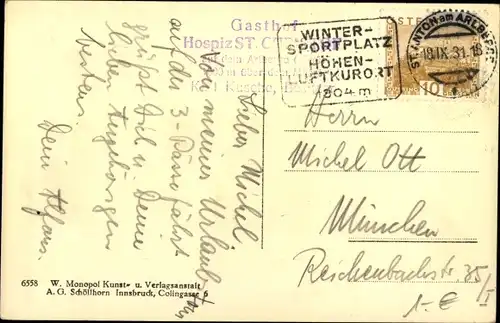 Gasthof
Hospiz ST. C
WINTER-
SPORTPLATZ
HÖHEN-
LUFTKURORT
1304 m
ST. ANTON am ARLBERG
18.IX.31.18
10
Lieber Michel
Von meiner Urlaubs
auf der 3-Pässefahrt
grüßt Dich u. Deine
lieben Angehörigen
bestens
Dein Alfons.
Herrn
Michel Ott
München
Reichenbachstr. 35/I
1.-€
6558 W. Monopol Kunst- u. Verlagsanstalt
A. G. Schöllhorn Innsbruck, Colingasse 6